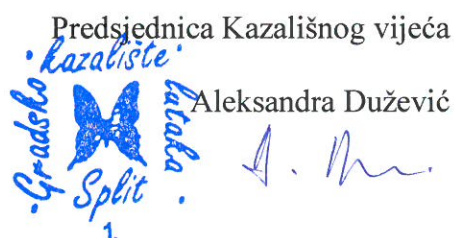 Predsjednica Kazališnog vijeća
Aleksandra Dužević
· Gradsko kazalište lutaka ·
Split
1